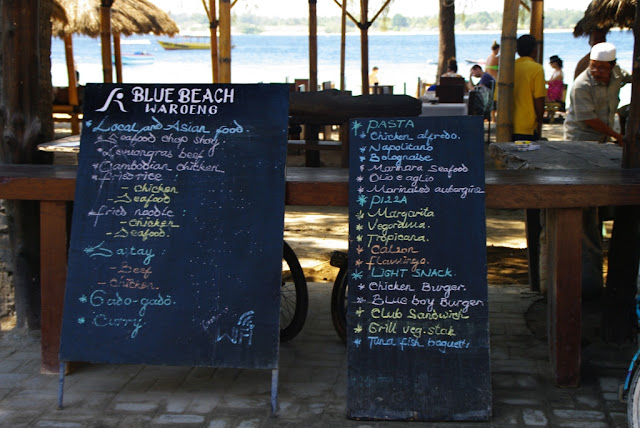 BLUE BEACH
WAROENG
Local and Asian food.
* Seafood chop shoy.
* Lemongras beef
* Cambodian chicken.
* Fried rice
- Chicken
- Seafood
* Fried noodle :
- Chicken
- Seafood.
* Satay :
- Beef
- Chicken.
* Gado-gado.
* Curry.
* PASTA
* Chicken alfredo.
* Napolitano
* Bolognaise
* Marinara Seafood
* Olio e aglio
* Marinated aubergine
* PIZZA
* Margarita
* Vegeriana.
* Tropicana.
* Calson
* Flamingo.
* LIGHT SNACK.
* Chicken Burger.
* BLUE boy Burger.
* Club Sandwich
* Grill veg. stak
* Tuna fish baguette